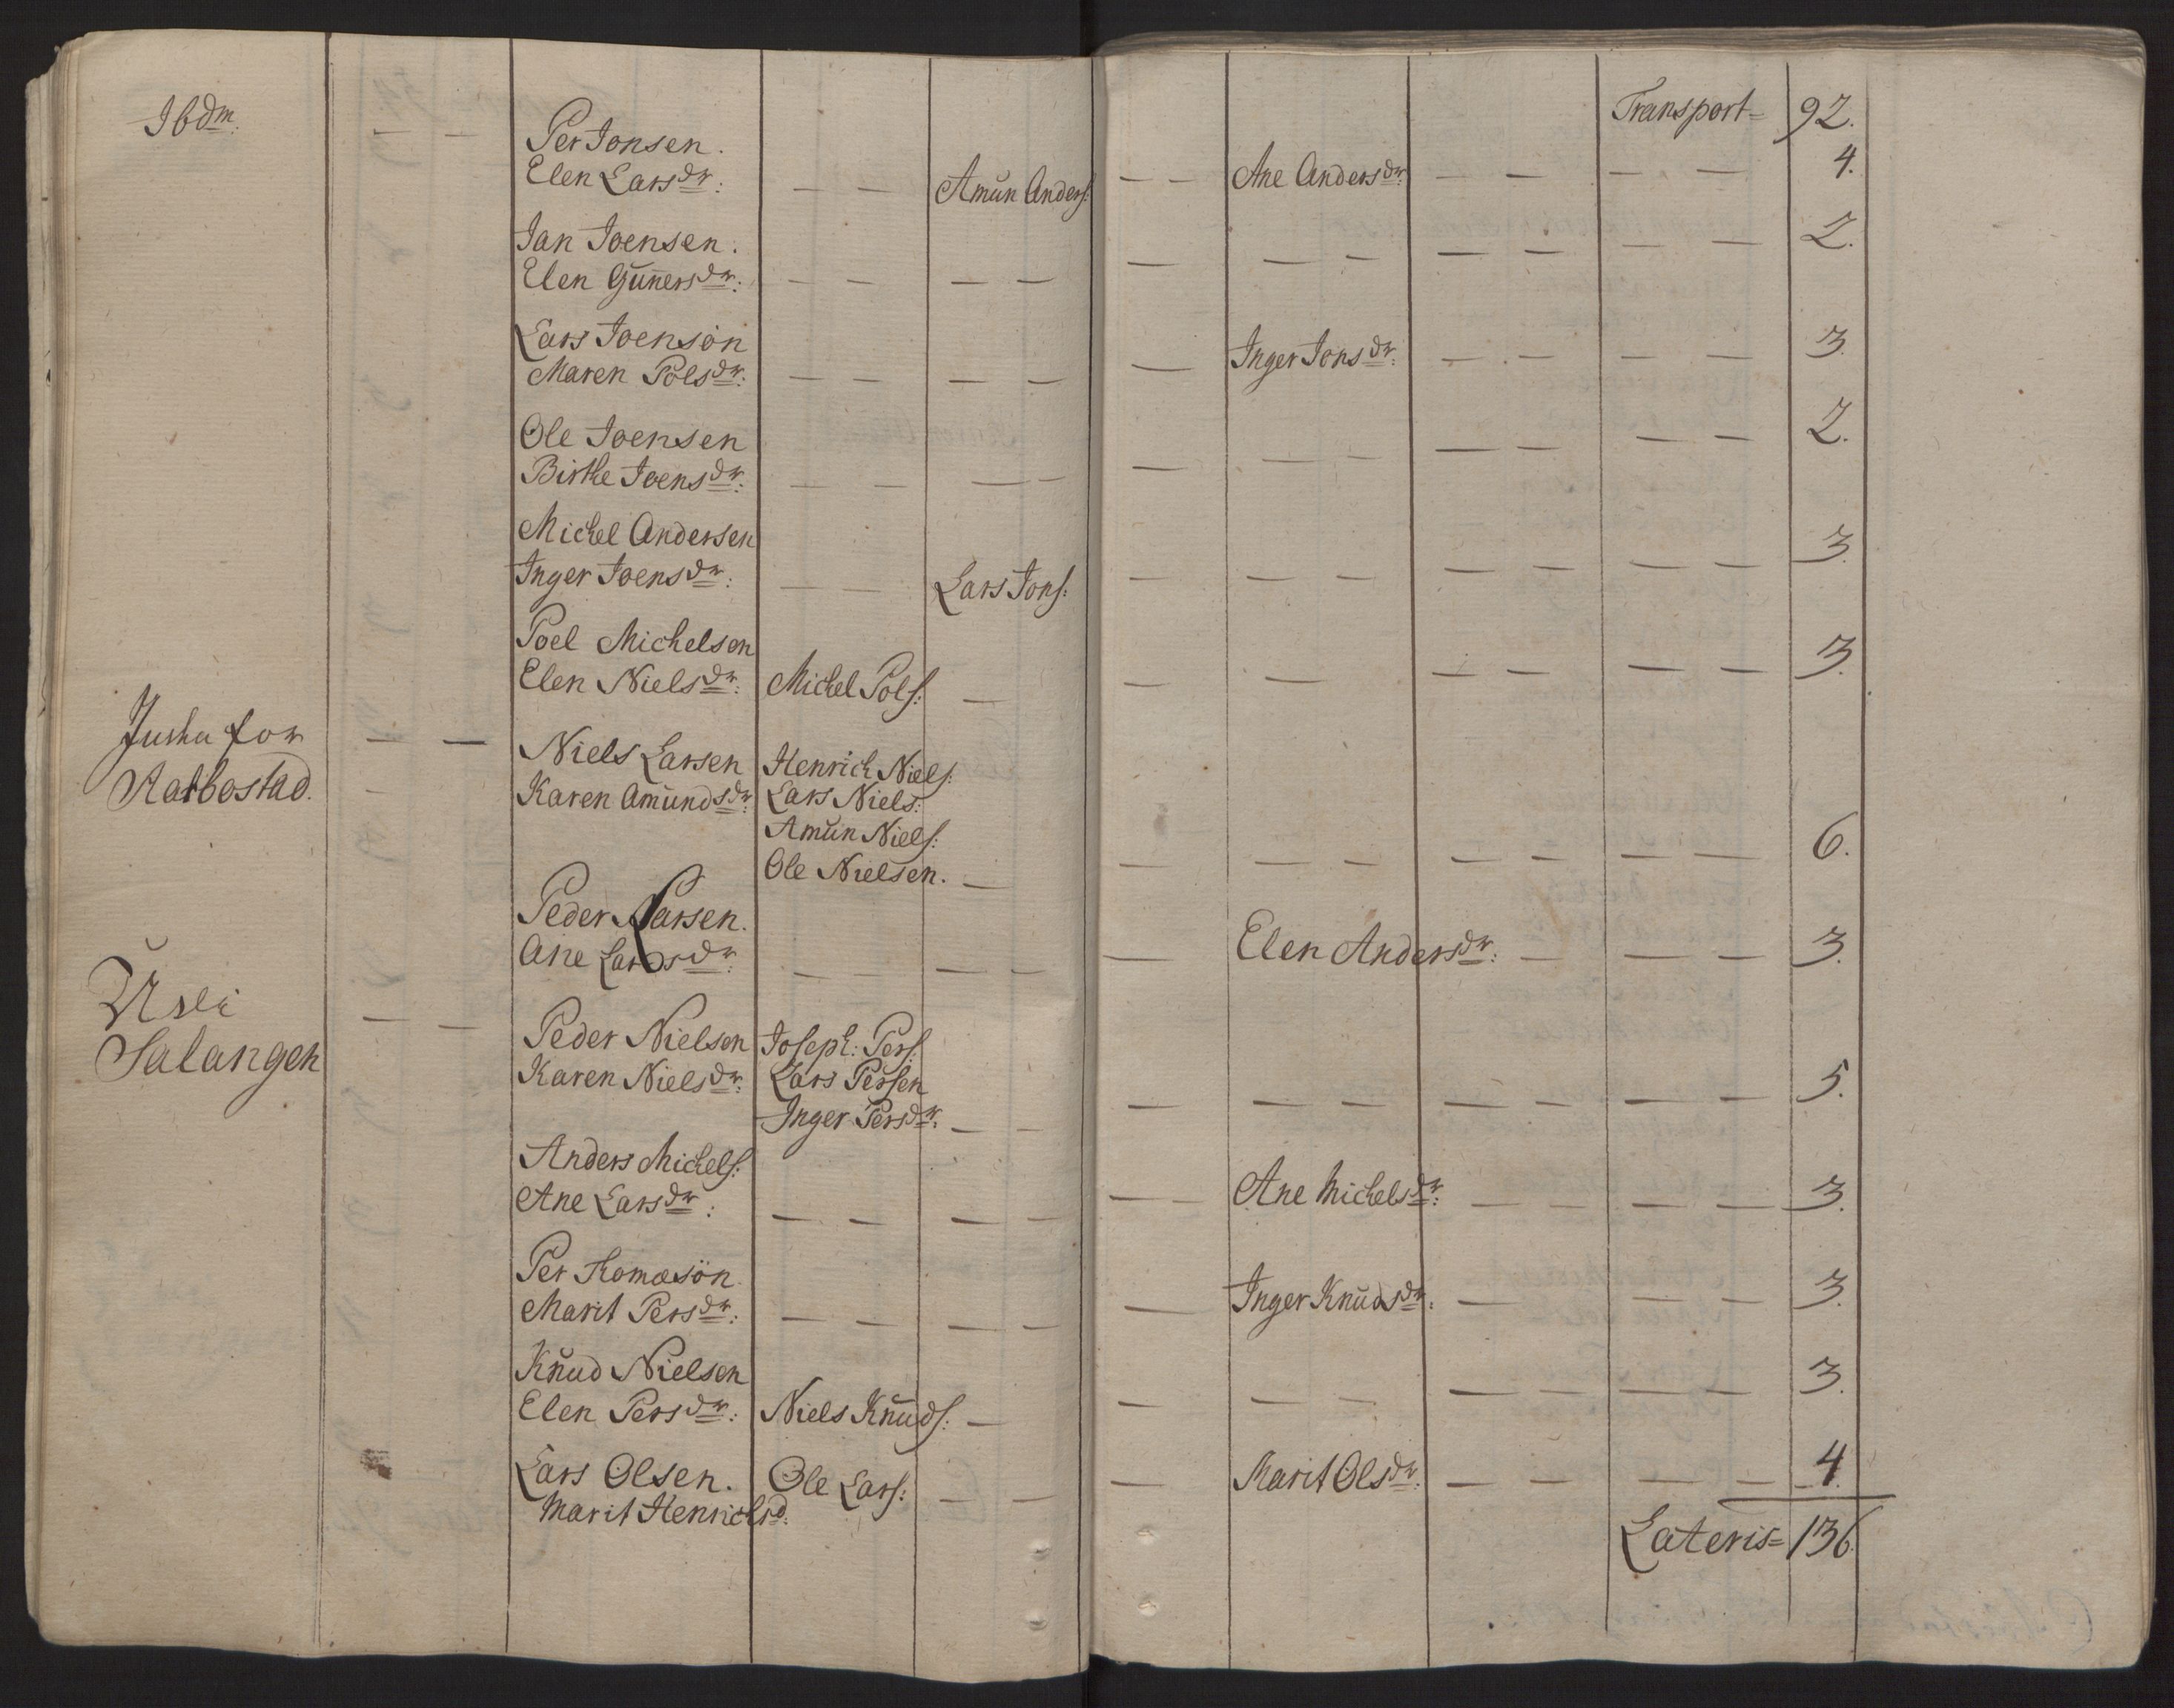 Ibdm: — — Transport= 92.
Per Jonsen.
Elen Larsdr: — — Amŭn Anders: — — Ane Andersdr: — — — — 4.
Jan Joensen.
Elen Gŭners dr: — — — — — — — — — — — 2.
Lars Joensøn
Maren Polsdr: — — — — — Inger Jonsdr: — — — — 3.
Ole Joensen
Birthe Joensdr: — — — — — — — — — — — 2.
Michel Andersen
Inger Joensdr: — — Lars Jons: — — — — — — — 3.
Poel Michelsen
Elen Nielsdr: Michel Pols: — — — — — — — 3.
for — —
Niels Larsen Henrich Niels:
Karen Amŭndsdr: Lars Niels:
Amŭn Niels:
Ole Nielsen. — — — — — — — — 6.
Peder Larsen.
Ane Larsdr: — — — — — Elen Andersdr: — — — 3.
Salangen — —
Peder Nielsen Joseph: Pers:
Karen Nielsdr: Lars Persen
Inger Persdr: — — — — — — — — — 5.
Anders Michels:
Ane Larsdr: — — — — — — Ane Michelsdr: — — — — 3.
Per Thomæsøn.
Marit Persdr: — — — — — Inger Knŭdsdr: — — — 3.
Knŭd Nielsen
Elen Persdr: Niels Knŭds: — — — — — — — — 3.
Lars Olsen. Ole Lars: — — — Marit Olsdr: — — — — 4.
Marit Henrichsd:
Lateris= 136.